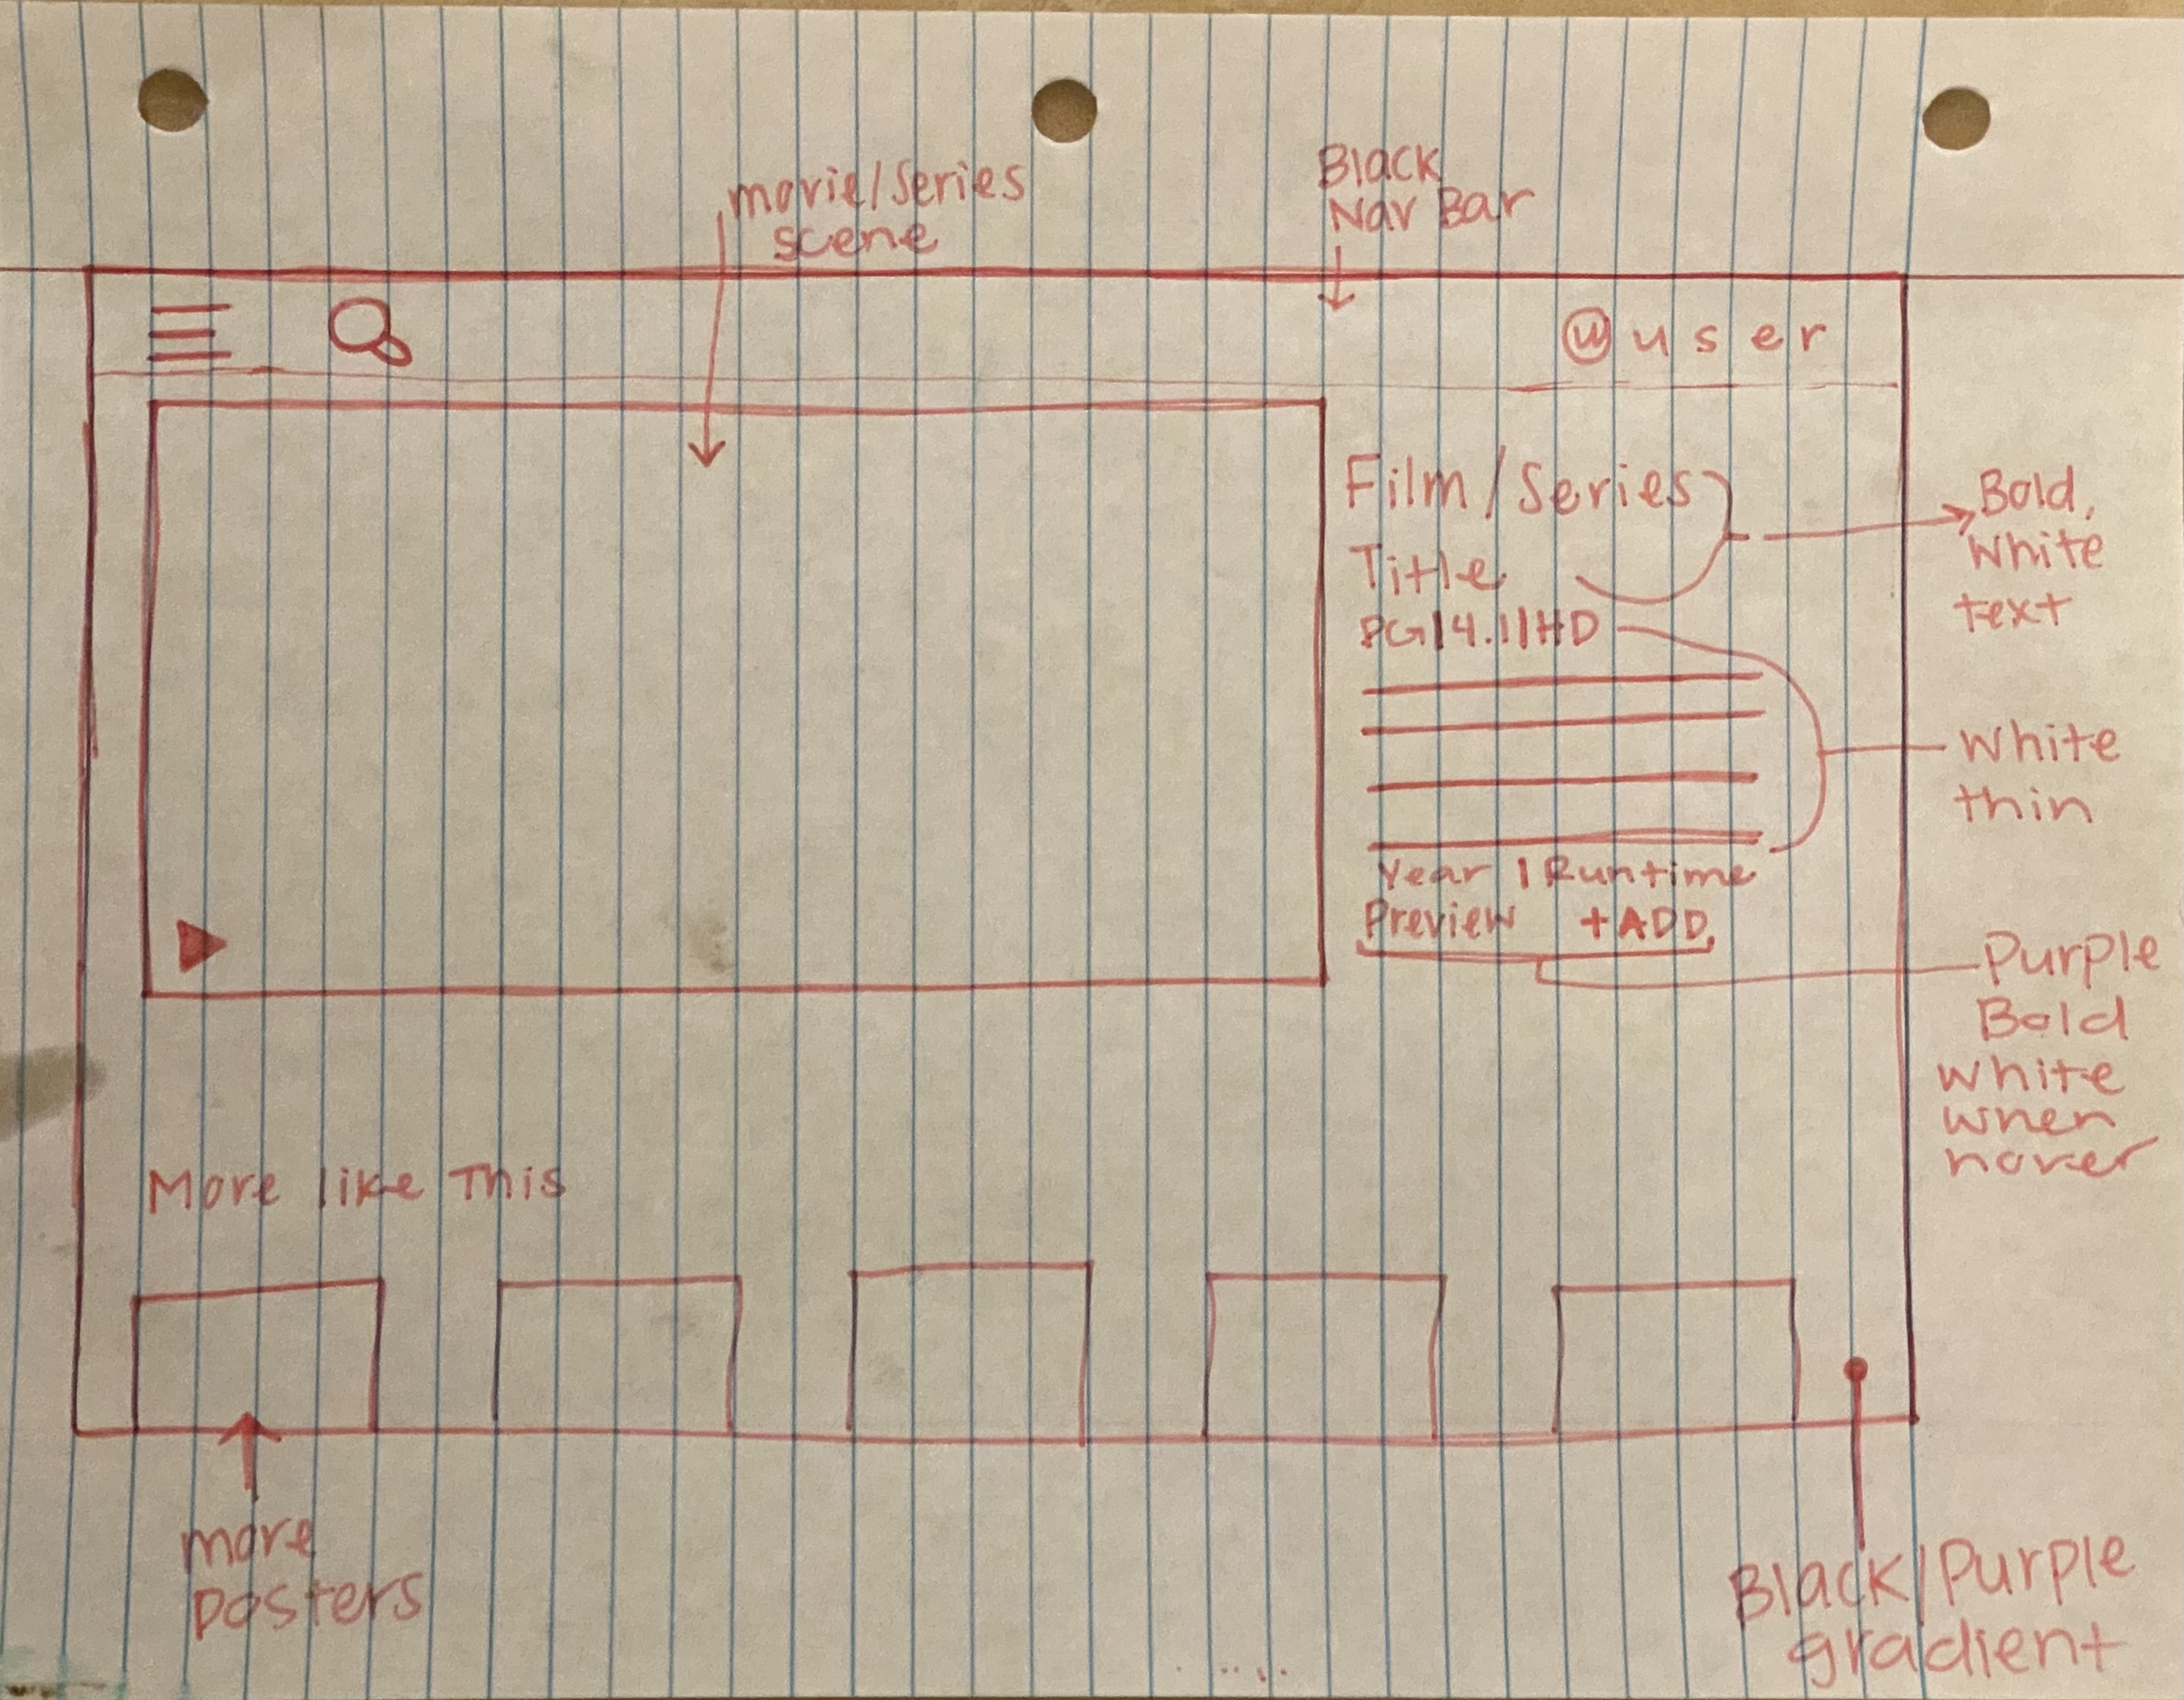 movie/Series
scene
Black
Nav Bar
@user
Film/Series
Title
PG|4.1|HD
Bold,
White
text
White
thin
Year | Runtime
Preview +ADD
Purple
Bold
White
when
hover
More like This
more
posters
Black/Purple
gradient